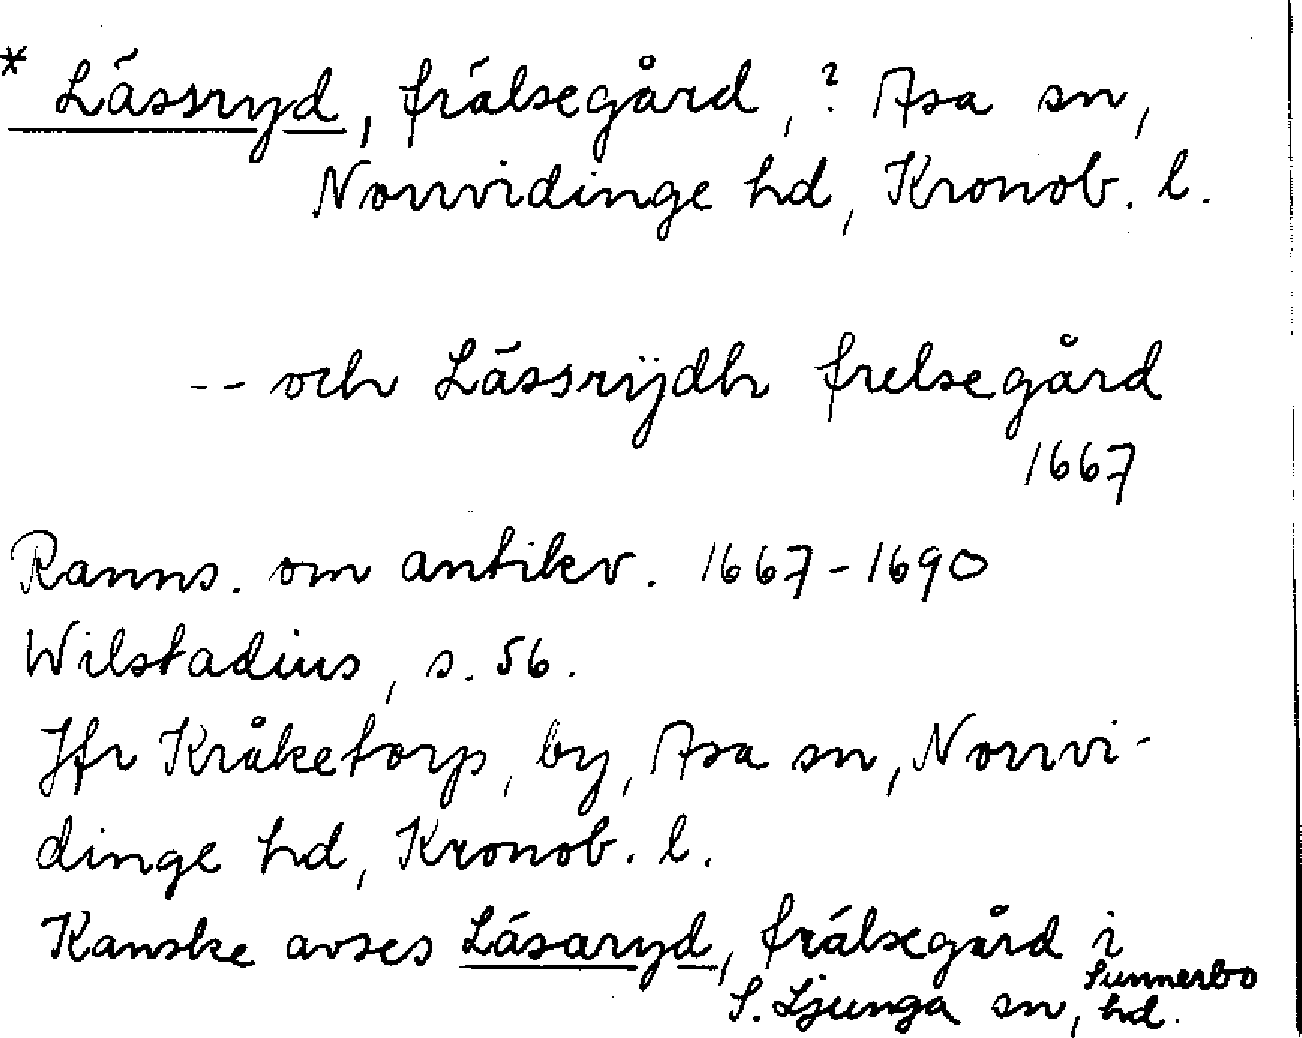 * Lässryd, frälsegård, ? Asa sn,
Norrvidinge hd, Kronob. l.
-- och Lässrÿdh frelsegård
1667
Ranns. om antikv. 1667-1690
Wilstadius, s. 56.
Jfr Kråketorp, by, Asa sn, Norrvi-
dinge hd, Kronob. l.
Kanske avses Läsaryd, frälsegård i
S. Ljunga sn, Sunnerbo hd.